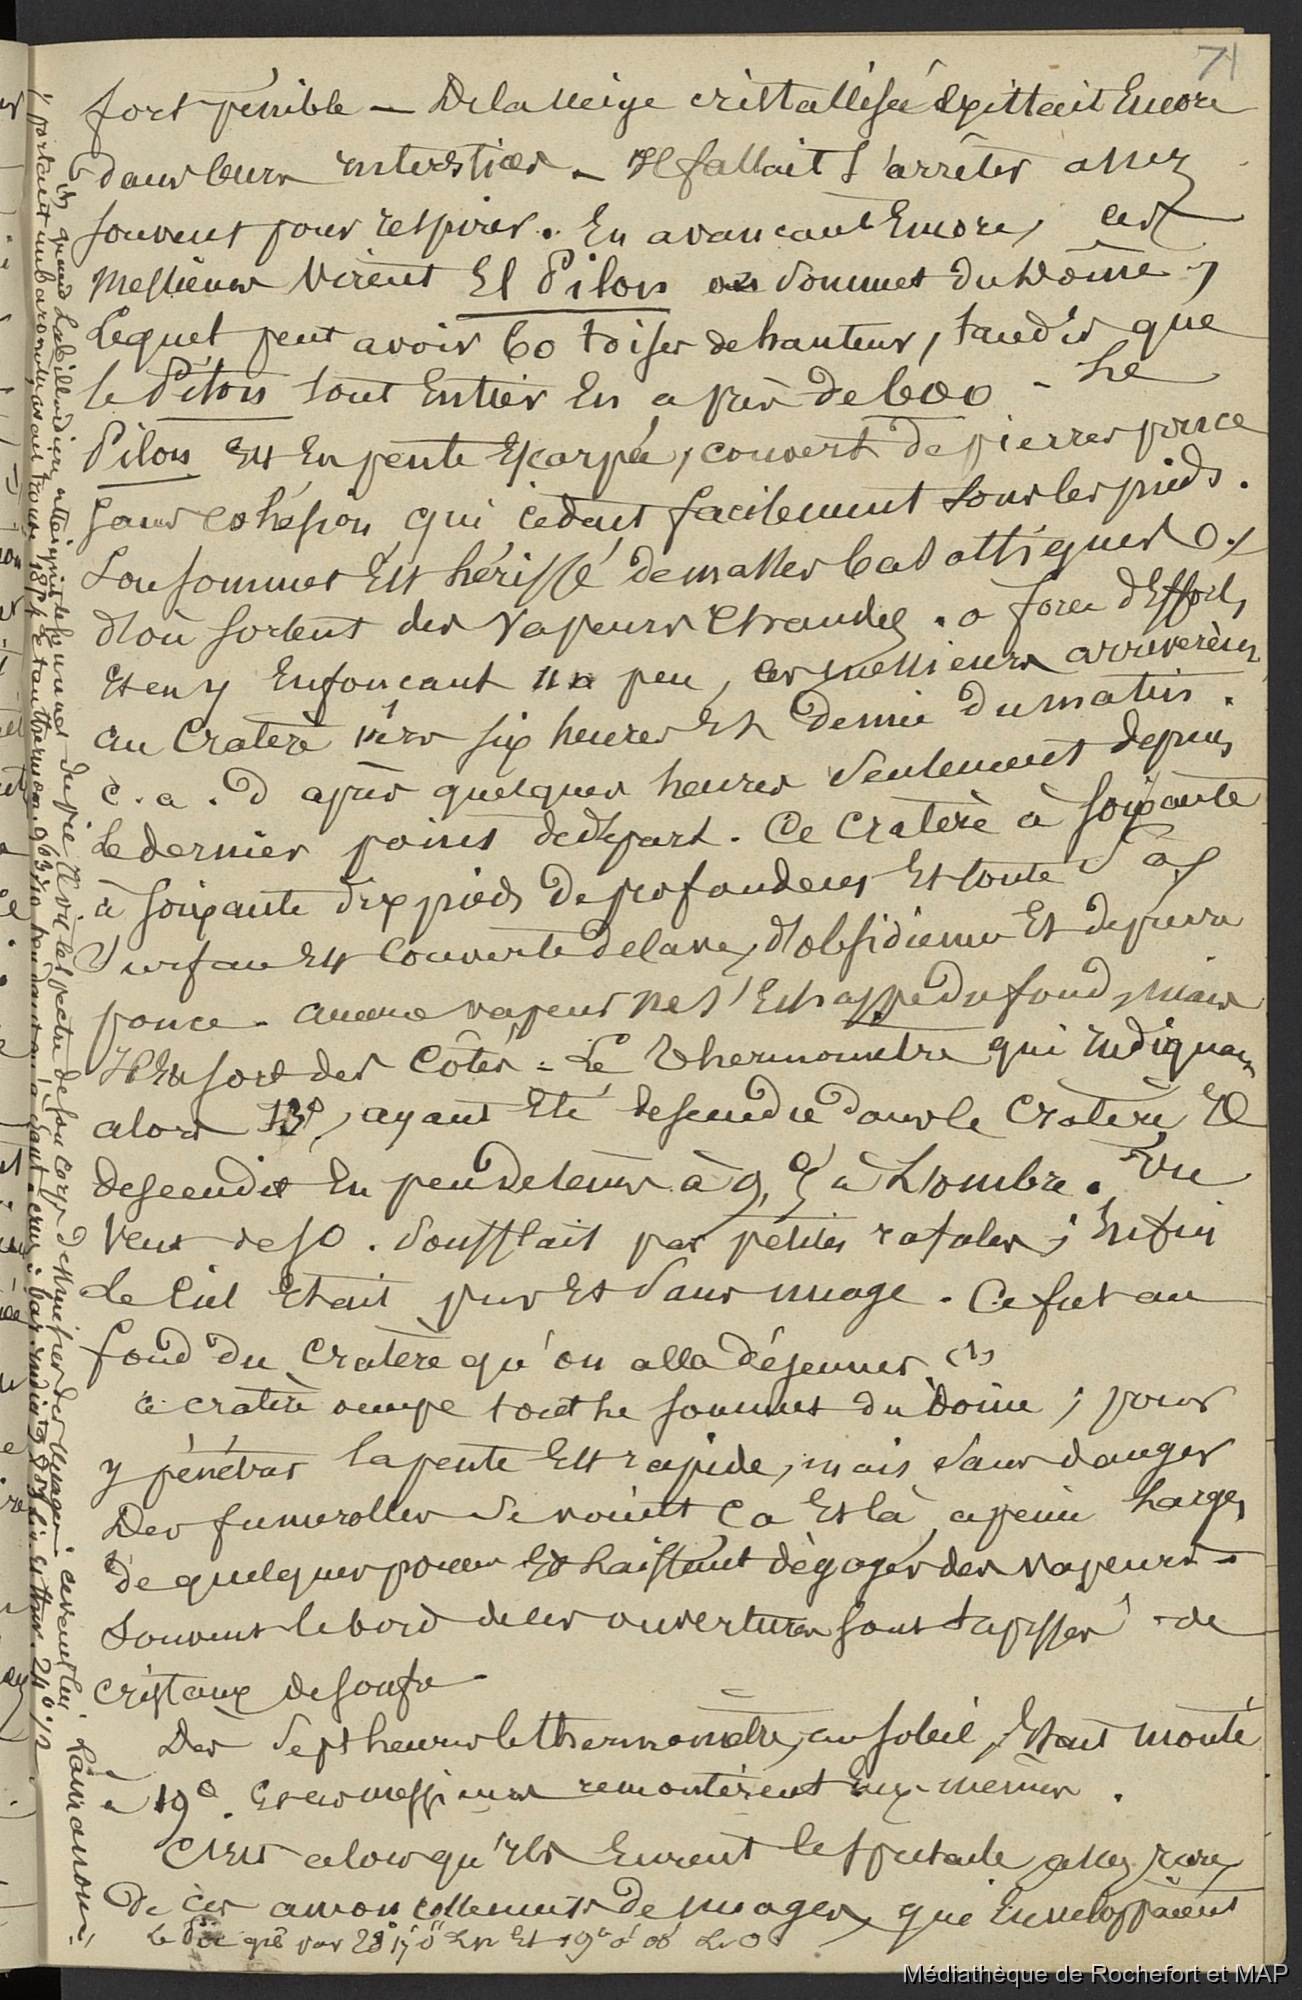 71
fort pénible — De la neige cristallisée éxistait Encore
dans leurs interstices. — Il fallait s'arrêter assez
souvent pour respirer. En avancant Encore, ces
Messieurs Virent El Pilon ou sommet du Dôme,
Lequel peut avoir 60 toises de hauteur, tandis que
le Pitons tout Entier En a près de 600 - Le
Pilon Est En pente Escarpée, couvert de pierres ponce
sans cohésion qui cèdent facilement sous les pieds.
Son sommet Est hérissé de masses basaltiques
d'où sortent des vapeurs chaudes. a force d'Efforts,
Et en y Enfoncant un peu, ces messieurs arrivèrent
au Cratère vers six heures Et demie du matin.
c. a. d après quelques heures seulement depuis
Le dernier point de départ. Ce Cratère à soixante
à soixante dix pieds de profondeur Et toute sa
surface Est Couverte de lave, d'obsidienne Et de pierre
ponce. aucune vapeur ne s'Echappe du fond, mais
Il En sort des Côtés. Le Thermomètre qui indiquait
alors 13°, ayant Eté descendu dans le Cratère Il
descendit En peu de tems à 9,5 à L'ombre. Un
Vent de SO. soufflait par petites rafales; Enfin
Le Ciel Etait pur Et sans nuage. Ce fut au
fond du Cratère qu'on alla déjeuner (1)
Ce cratère occupe tout le sommet du Dôme; pour
y pénétrer la pente Est rapide, mais sans danger
Des fumerolles se voient Ca Et là, a peine Larges
de quelques pouces Et laissant dégager des vapeurs -
Souvent le bord de ces ouvertures sont tapissés de
cristaux de soufre -
Dès sept heures le thermomètre, au soleil, Etait monté
à 19°. Et ces messieurs remontèrent Eux-mêmes.
C'est alors qu'Ils Eurent le spectacle assez rare
De ces amoncellements de nuages, que Enveloppaient
Le Pic gît par 28° 17' 0" Ln Et 19° 0' 00 L. O.
(1) quand Labillardière atteignit le sommet du pic Il vit le spectre de son corps dessiné sur des Nuages devant lui. Lamanon
y portant un baromètre